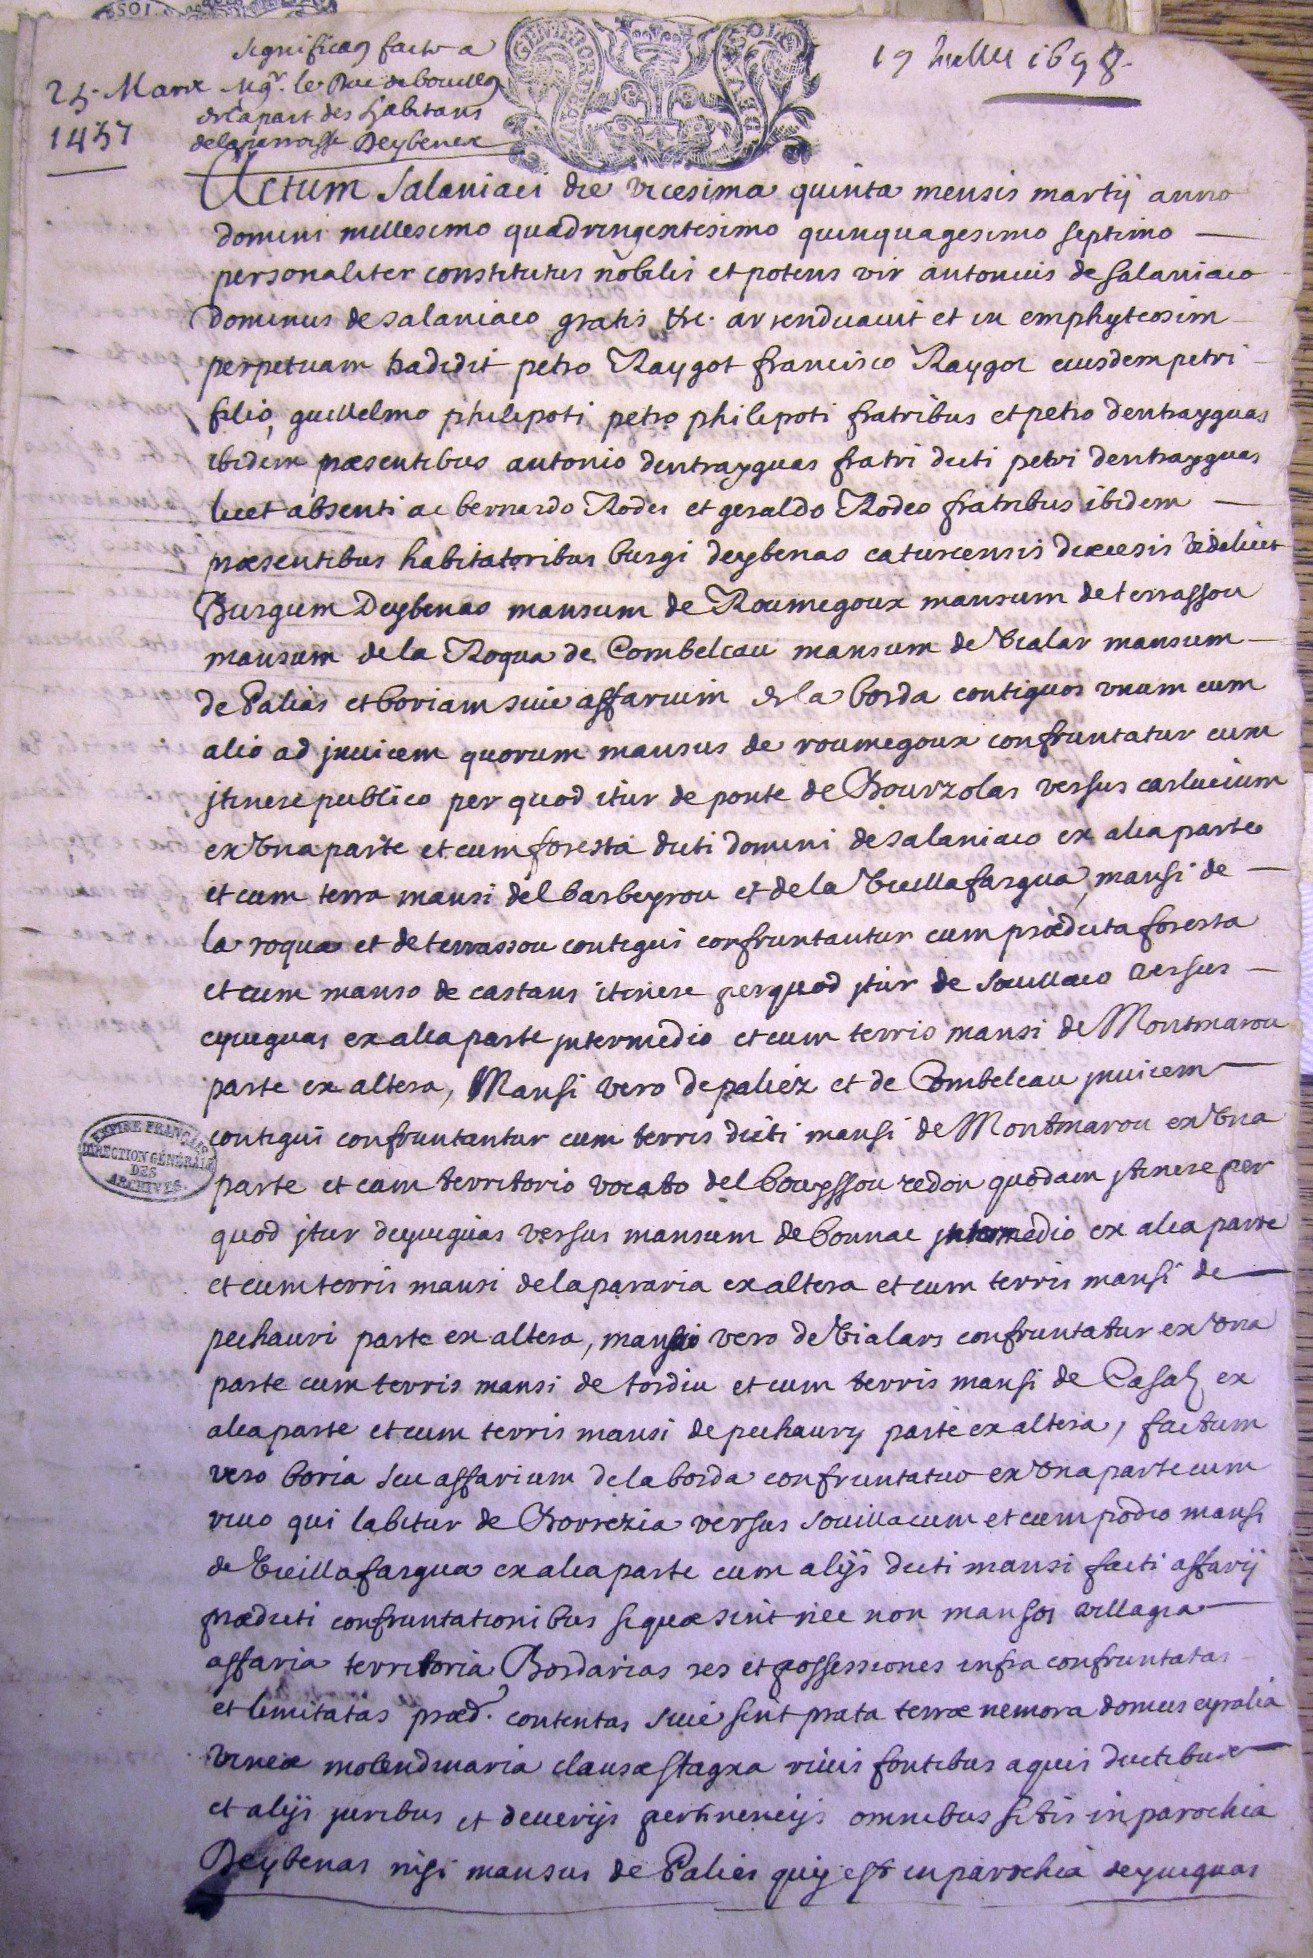 significaõn faite a
Mgr. le Duc de bouillon
de la part des habitans
de la parroisse Deybenex
25. Marx
1457
19 Juillet 1698.
GENERALITE
MONTAUBAN
SOLS
Actum Salaniaci die vicesima quinta mensis martij anno
domini millesimo quadringentesimo quinquagesimo septimo
personaliter constitutus nobilis et potens vir antonius de Salaniaco
dominus de salaniaco gratis &c. arrenduavit et in emphyteosim
perpetuam tradidit petro Raygot francisco Raygot eiusdem petri
filio, guillelmo philipoti petro philipoti fratribus et petro dentrayguas
ibidem præsentibus antonio dentrayguas fratri dicti petri dentrayguas
licet absenti ac bernardo Roder et geraldo Rodeo fratribus ibidem
præsentibus habitatoribus burgi deybenas caturcensis diæcesis videlicet
Burgum Deybenas mansum de Roumegoux mansum de terrassou
mansum de la Roqua de Combelcau mansum de Vialar mansum
de Paliás et boriam sive affarium de la borda contiguos unum cum
alio ad jnvicem quorum mansus de roumegoux confruntatur cum
jtinere publico per quod itur de ponte de Bourzolas versus carlucium
ex Vna parte et cum foresta dicti domini de salaniaco ex alia parte
et cum terra mansi del barbeyrou et de la Vieillafargua, mansi de
la roqua et de terrassou contigui confruntantur cum prædicta foresta
et cum manso de castans itinere per quod jtur de souillaco versus
eyviguas ex alia parte jntermedio et cum terris mansi de Montmarou
parte ex altera, Mansi vero de paliéz et de Combelcau jnvicem
contigui confruntantur cum terris dicti mansi de Montmarou ex Vna
parte et cum territorio vocato del bouyssou redon quodam jtinere per
quod jtur deyviguas versus mansum de bonnac jntermedio ex alia parte
et cum terris mansi de la pararia ex altera et cum terris mansi de
pechauri parte ex altera, mansus vero de Vialars confruntatur ex Vna
parte cum terris mansi de tordiu et cum terris mansi de Casalz ex
alia parte et cum terris mansi de pechaury parte ex altera, factum
vero boria seu affarium de la borda confruntatur ex Vna parte cum
rivo qui labitur de Borrezia versus souillacum et cum podio mansi
de Vieillafargua ex alia parte cum alijs dicti mansi facti affarij
prædicti confruntationibus si quæ sint nec non mansos villagia
affaria territoria Bordarias res et possessiones infra confruntatas
et limitatas præd. contentas sive sint prata terræ nemora domus eyralia
vineæ molendinaria clausæ stagna rivis fontibus aquis ductibus
et alijs juribus et deverijs pertinencijs omnibus sitis in parochia
Deybenas nisi mansus de Paliés quij est in parochia deyviguas
EMPIRE FRANÇAIS
DIRECTION GÉNÉRALE
DES
ARCHIVES.